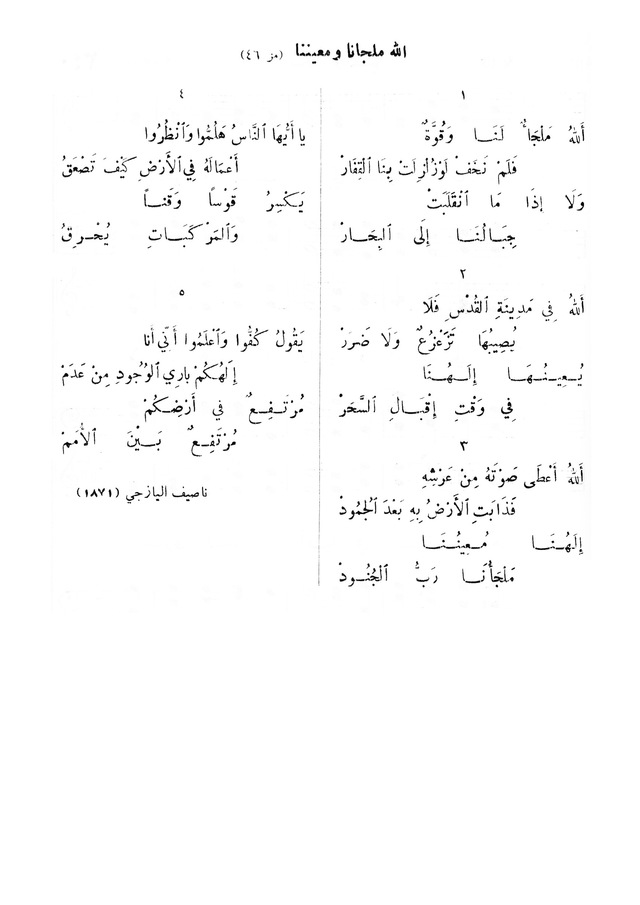 الله ملجانا ومعيننا (مز ٤٦)
١
اَللهُ مَلْجَاٌ لَنَا وَقُوَّةٌ
فَلَمْ نَخَفْ لَوْ زُلْزِلَتْ بِنَا القِفَارْ
وَلَا إِذَا مَا ٱنْقَلَبَتْ
جِبَالُنَا إِلَى البِحَارْ
٢
اَللهُ فِي مَدِينَةِ القُدْسِ فَلَا
يُصِيبُهَا تَزَعْزُعٌ وَلَا ضَرَرْ
يُعِينُهَا إِلٰهُنَا
فِي وَقْتِ إِقْبَالِ السَّحَرْ
٣
اَللهُ أَعْطَى صَوْتَهُ مِنْ عَرْشِهِ
فَذَابَتِ ٱلْأَرْضُ بِهِ بَعْدَ الجُمُودْ
إِلٰهُنَا مُعِينُنَا
مَلْجَأُنَا رَبُّ الجُنُودْ
٤
يا أَيُّهَا ٱلنَّاسُ هَلُمُّوا وَٱنْظُرُوا
أَعْمَالَهُ فِي ٱلْأَرْضِ كَيْفَ تَصْعَقُ
يَكْسِرُ قَوْسًا وَقَنًا
وَٱلمَرْكَبَاتِ يُحْرِقُ
٥
يَقُولُ كُفُّوا وَٱعْلَمُوا أَنِّي أَنَا
إِلٰهُكُمْ بَارِي ٱلْوُجُودِ مِنْ عَدَمْ
مُرْتَفِعٌ في أَرْضِكُمْ
مُرْتَفِعٌ بَيْنَ الأُمَمْ
ناصيف اليازجي (١٨٧١)